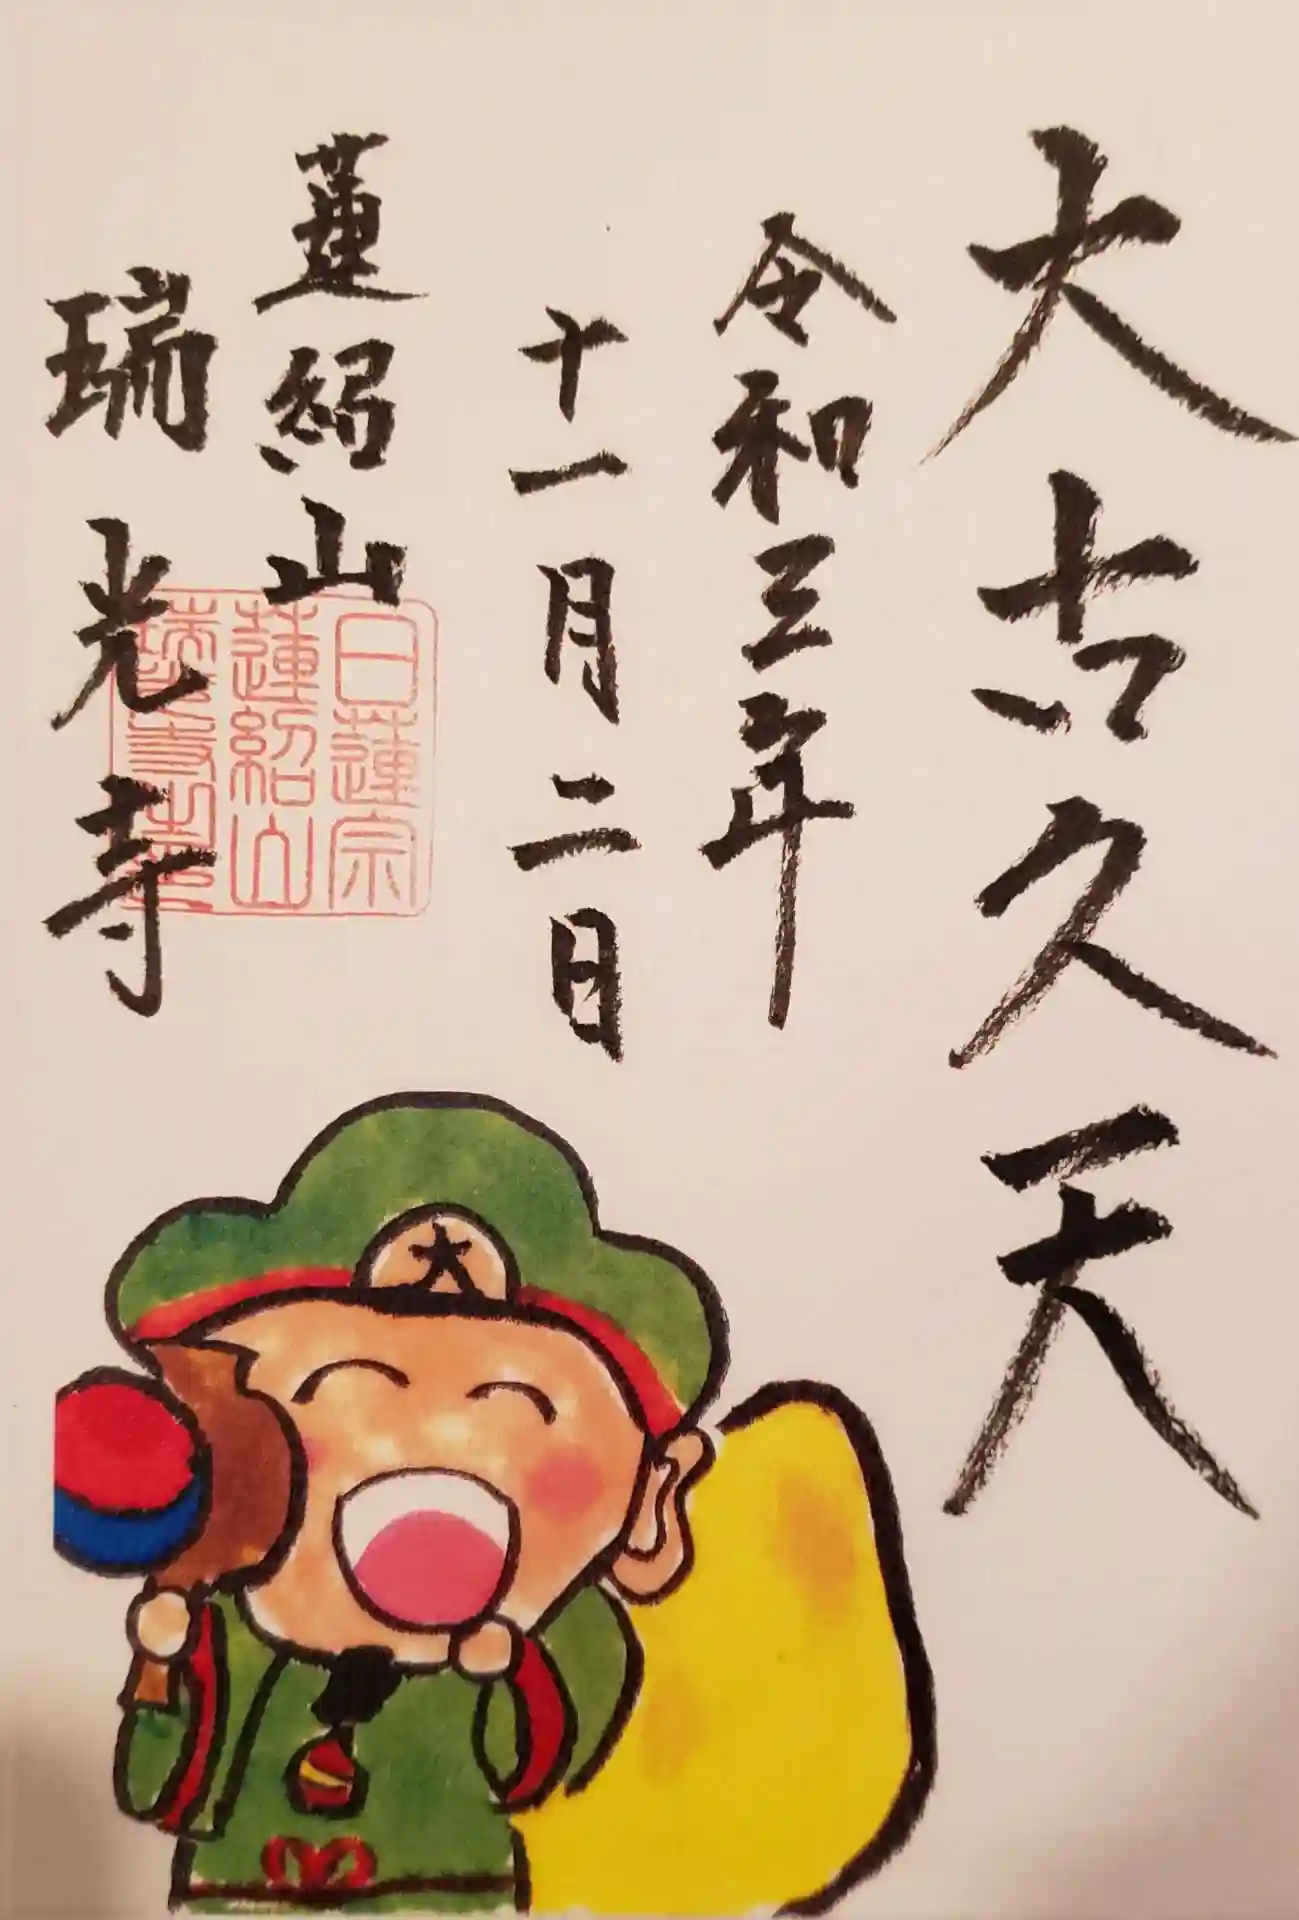 大古久天
令和三年
十一月二日
蓮紹山
瑞光寺
日蓮宗
蓮紹山
大